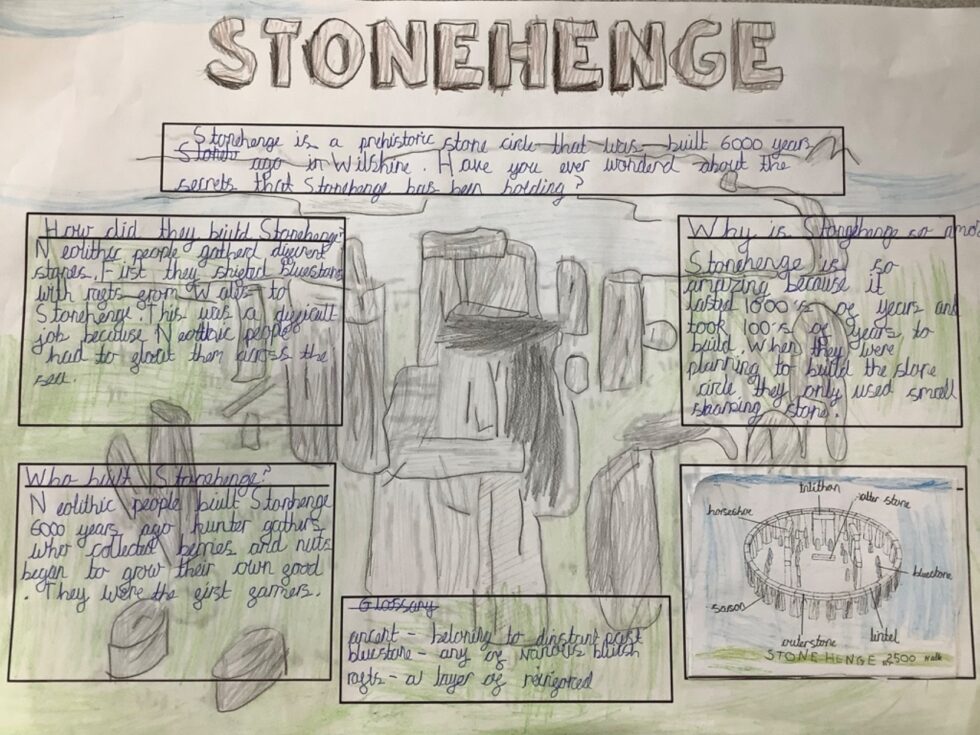 STONEHENGE
Stonehenge is a prehistoric stone circle that was built 6000 years
ago in Wilshire. Have you ever wonderd about the
secrets that Stonehenge has been holding?
How did they build Stonehenge?
Neolithic people gatherd diffrent
stones. First they shifted bluestone
with rafts from Wales to
Stonehenge. This was a difficult
job because Neolithic people
had to float them across the
sea.
Why is Stonehenge so
Stonehenge is so
amazing because it
lasted 1000's of years and
took 100's of years to
build. When they were
planning to build the stone
circle they only used small
stone.
Who built Stonehenge?
Neolithic people built Stonehenge
6000 years ago hunter gathers
who collected berries and nuts
began to grow their own food
. They were the first farmers.
Glossary
ancent - belonging to dinstant past
bluestone - any of various bluish
rafts - a layer of reinforced
trilithon
alter stone
horseshoe
bluestone
sarson
outerstone
lintel
STONEHENGE 2500